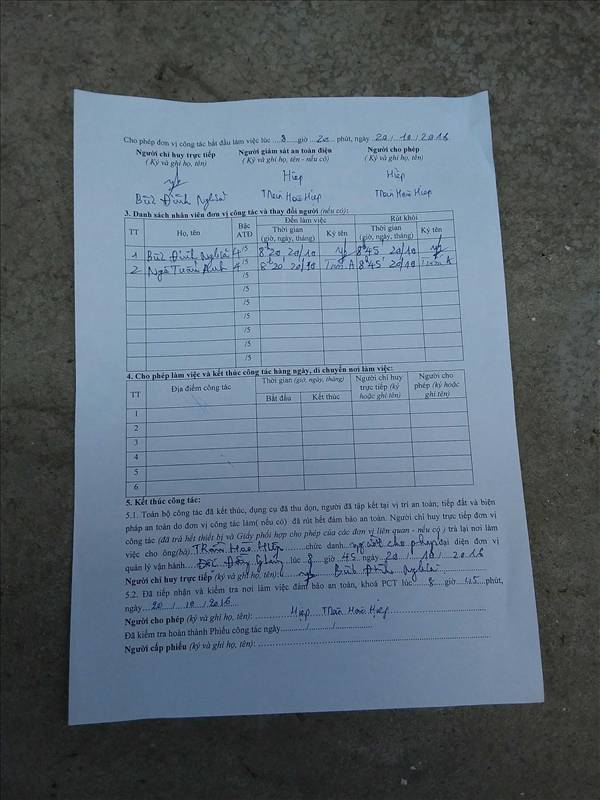 Cho phép đơn vị công tác bắt đầu làm việc lúc ....8.....giờ ...20.... phút, ngày 20 / 10 / 2016
Người chỉ huy trực tiếp Người giám sát an toàn điện Người cho phép
( Ký và ghi họ, tên) ( Ký và ghi họ, tên - nếu có) ( Ký và ghi họ, tên)
Hiệp Hiệp
Bùi Đình Nghĩa Trần Hào Hiệp Trần Hào Hiệp
3. Danh sách nhân viên đơn vị công tác và thay đổi người (nếu có):
TT Họ, tên Bậc ATĐ Đến làm việc Rút khỏi
Thời gian (giờ, ngày, tháng) Ký tên Thời gian (giờ, ngày, tháng) Ký tên
1 Bùi Đình Nghĩa 4/5 8h20, 20/10 8h45, 20/10
2 Ngô Tuấn Anh 4/5 8h20 20/10 Tuấn A 8h45 20/10 Tuấn A
/5
/5
/5
/5
/5
/5
/5
4. Cho phép làm việc và kết thúc công tác hàng ngày, di chuyển nơi làm việc:
TT Địa điểm công tác Thời gian (giờ, ngày, tháng) Người chỉ huy trực tiếp (ký hoặc ghi tên) Người cho phép (ký hoặc ghi tên)
Bắt đầu Kết thúc
1
2
3
4
5
6
5. Kết thúc công tác:
5.1. Toàn bộ công tác đã kết thúc, dụng cụ đã thu dọn, người đã tập kết tại vị trí an toàn; tiếp đất và biện
pháp an toàn do đơn vị công tác làm( nếu có) đã rút hết đảm bảo an toàn. Người chỉ huy trực tiếp đơn vị
công tác (đã trả hết thiết bị và Giấy phối hợp cho phép của các đơn vị liên quan - nếu có ) trả lại nơi làm
việc cho ông(bà) Trần Hào Hiệp..........chức danh...người cho phép đại diện đơn vị
quản lý vận hành.... lúc 8 giờ 45 ngày 20 / 10 / 2016
Người chỉ huy trực tiếp (ký và ghi họ, tên): Bùi Đình Nghĩa
5.2. Đã tiếp nhận và kiểm tra nơi làm việc đảm bảo an toàn, khoá PCT lúc....8.....giờ ..45..phút,
ngày...20 / 10 /2016...
Người cho phép (ký và ghi họ, tên): ..........Hiệp Trần Hào Hiệp..........
Đã kiểm tra hoàn thành Phiếu công tác ngày........../........../..........
Người cấp phiếu (ký và ghi họ, tên): ..........